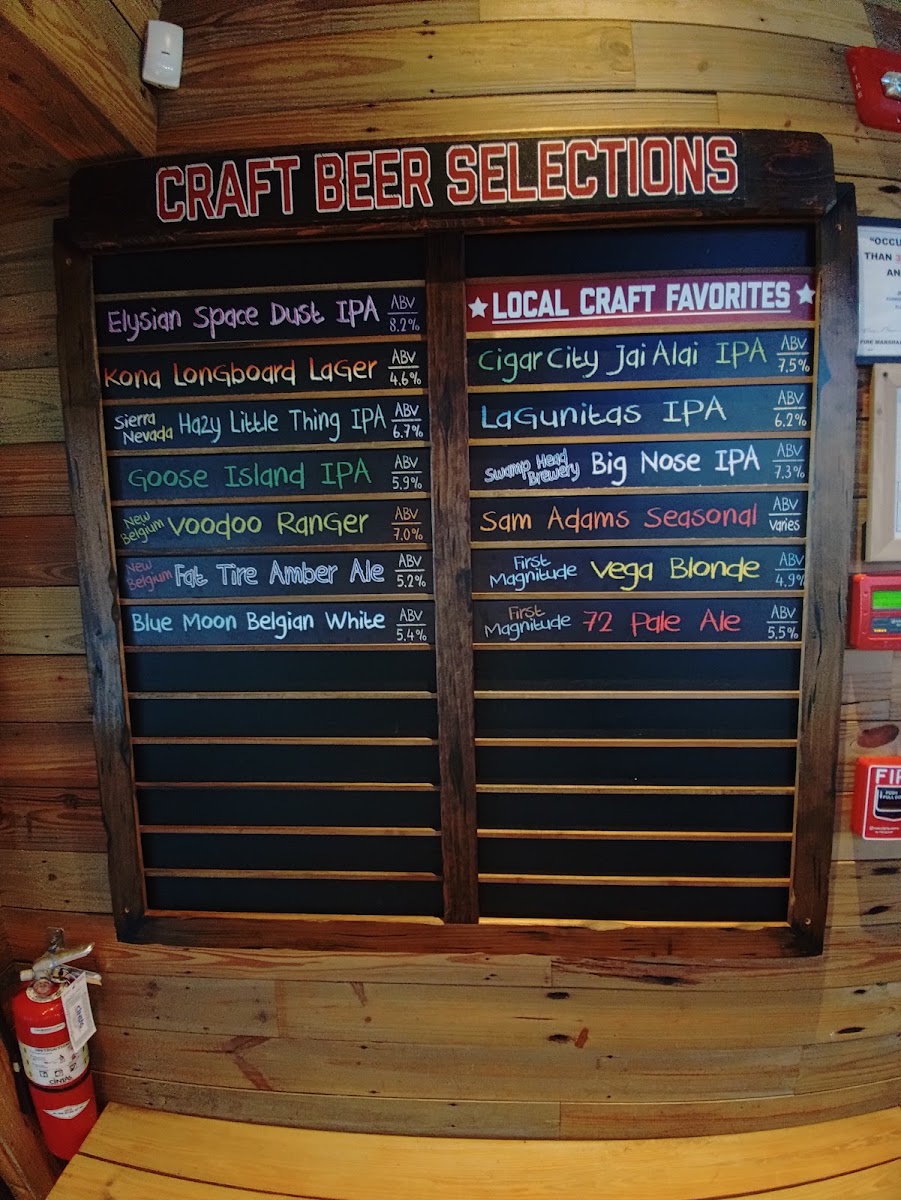 CRAFT BEER SELECTIONS
Elysian Space Dust IPA ABV 8.2%
Kona Longboard Lager ABV 4.6%
Sierra Nevada Hazy Little Thing IPA ABV 6.7%
Goose Island IPA ABV 5.9%
New Belgium Voodoo Ranger ABV 7.0%
New Belgium Fat Tire Amber Ale ABV 5.2%
Blue Moon Belgian White ABV 5.4%
LOCAL CRAFT FAVORITES
Cigar City Jai Alai IPA ABV 7.5%
Lagunitas IPA ABV 6.2%
Swamp Head Brewery Big Nose IPA ABV 7.3%
Sam Adams Seasonal ABV Varies
First Magnitude Vega Blonde ABV 4.9%
First Magnitude 72 Pale Ale ABV 5.5%
"OCCU
THAN 3
AN
FIRE MARSHA
FIRE
FIR
cintas